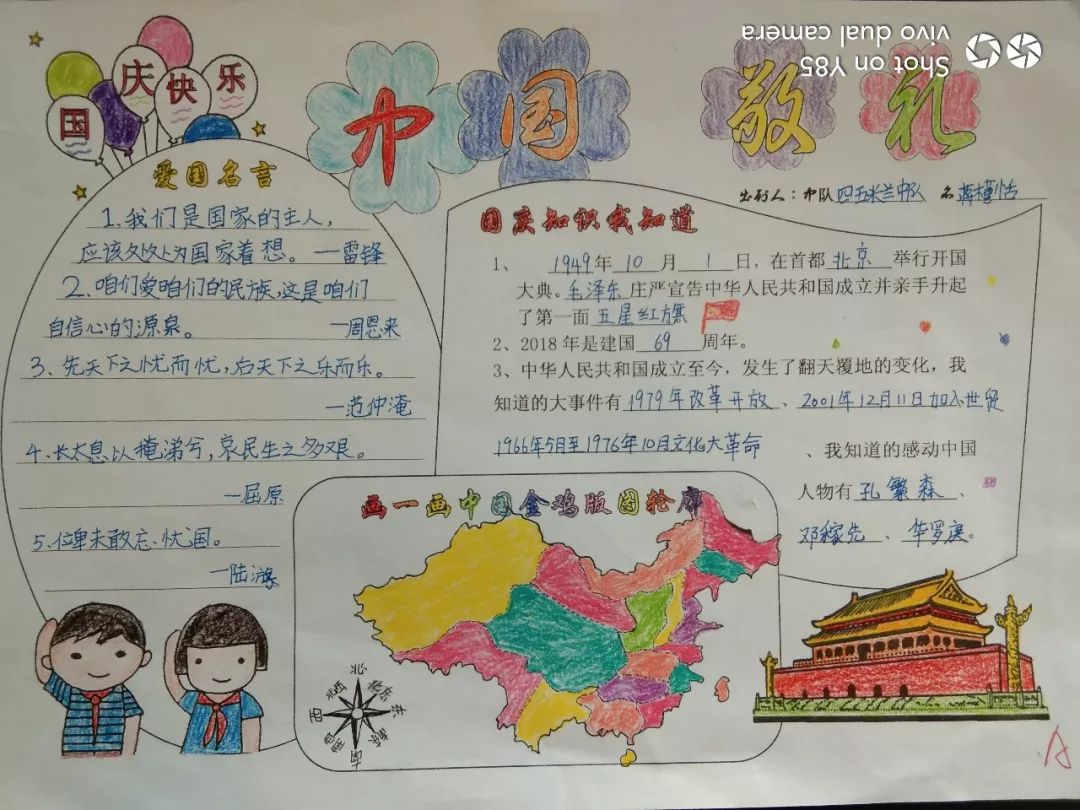 Shot on Y85
vivo dual camera
国庆快乐
中国 敬礼
出刊人:中队四五米兰中队 名
爱国名言
1.我们是国家的主人,
应该处处为国家着想。—雷锋
2.咱们爱咱们的民族,这是咱们
自信心的源泉。 —周恩来
3.先天下之忧而忧,后天下之乐而乐。
—范仲淹
4.长太息以掩涕兮,哀民生之多艰。
—屈原
5.位卑未敢忘忧国。
—陆游
国庆知识我知道
1、 1949年 10 月 1 日,在首都 北京 举行开国
大典。毛泽东 庄严宣告中华人民共和国成立并亲手升起
了第一面 五星红旗
2、2018年是建国 69 周年。
3、中华人民共和国成立至今,发生了翻天覆地的变化,我
知道的大事件有 1979年改革开放 、2001年12月11日加入世贸
1966年5月至1976年10月文化大革命 、我知道的感动中国
人物有 孔繁森 、
邓稼先 、 华罗庚。
画一画中国金鸡版图轮廓
北
西北 东北
西 东
西南 东南
南
A